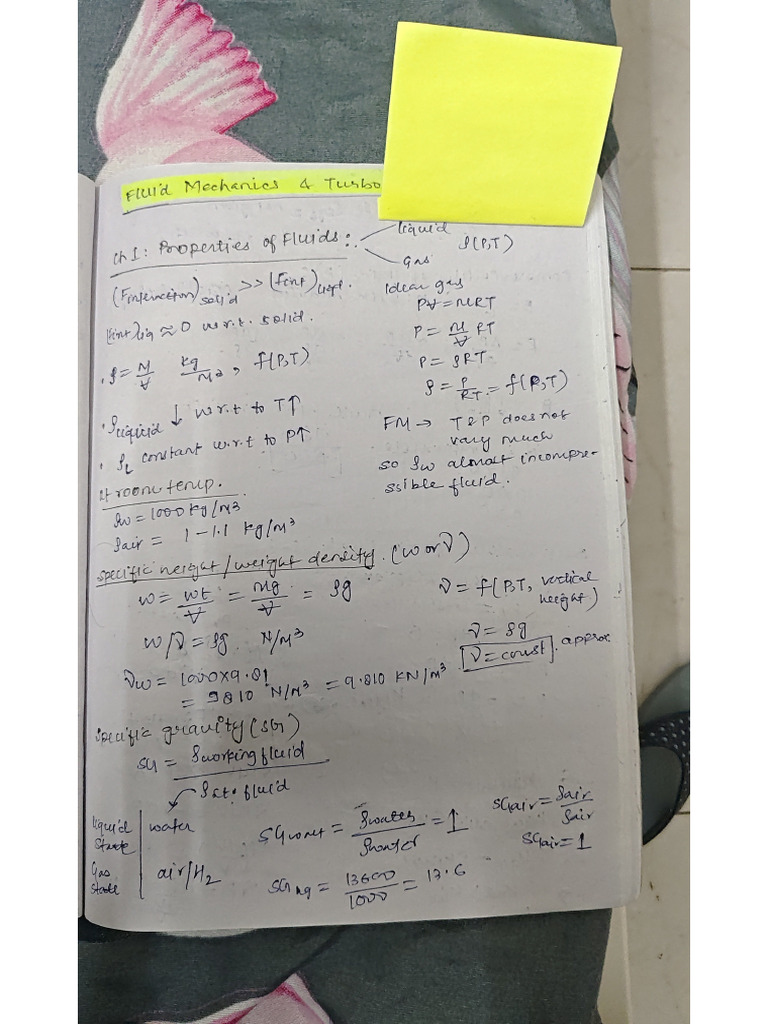 Fluid Mechanics & Turbo
Ch 1: Properties of Fluids:
liquid
Gas
ρ(P,T)
(Finteraction)solid >> (Fint)liqd.
(Fint)liq ≈ 0 w.r.t. solid.
• ρ = M/V kg/M3, f(P,T)
• ρliquid ↓ w.r.t to T↑
• ρL constant w.r.t to P↑
Ideal gas
PV = MRT
P = M/V RT
P = ρRT
ρ = P/RT = f(P,T)
FM → T & P does not
vary much
so ρw almost incompre-
ssible fluid.
At room temp.
ρw = 1000 kg/m3
ρair = 1 – 1.1 kg/m3
specific weight/weight density. (w or γ)
w = wt/V = Mg/V = ρg
w/γ = ρg N/m3
γw = 1000×9.81
= 9810 N/m3 = 9.810 KN/m3
γ = f(P,T, vertical
height)
γ = ρg
[γ = const]. approx
specific gravity (SG)
SG = ρworking fluid
ρst. fluid
liquid state | water
Gas state | air/H2
SGwater = ρwater/ρwater = 1
SGHg = 13600/1000 = 13.6
SGair = ρair/ρair
SGair = 1